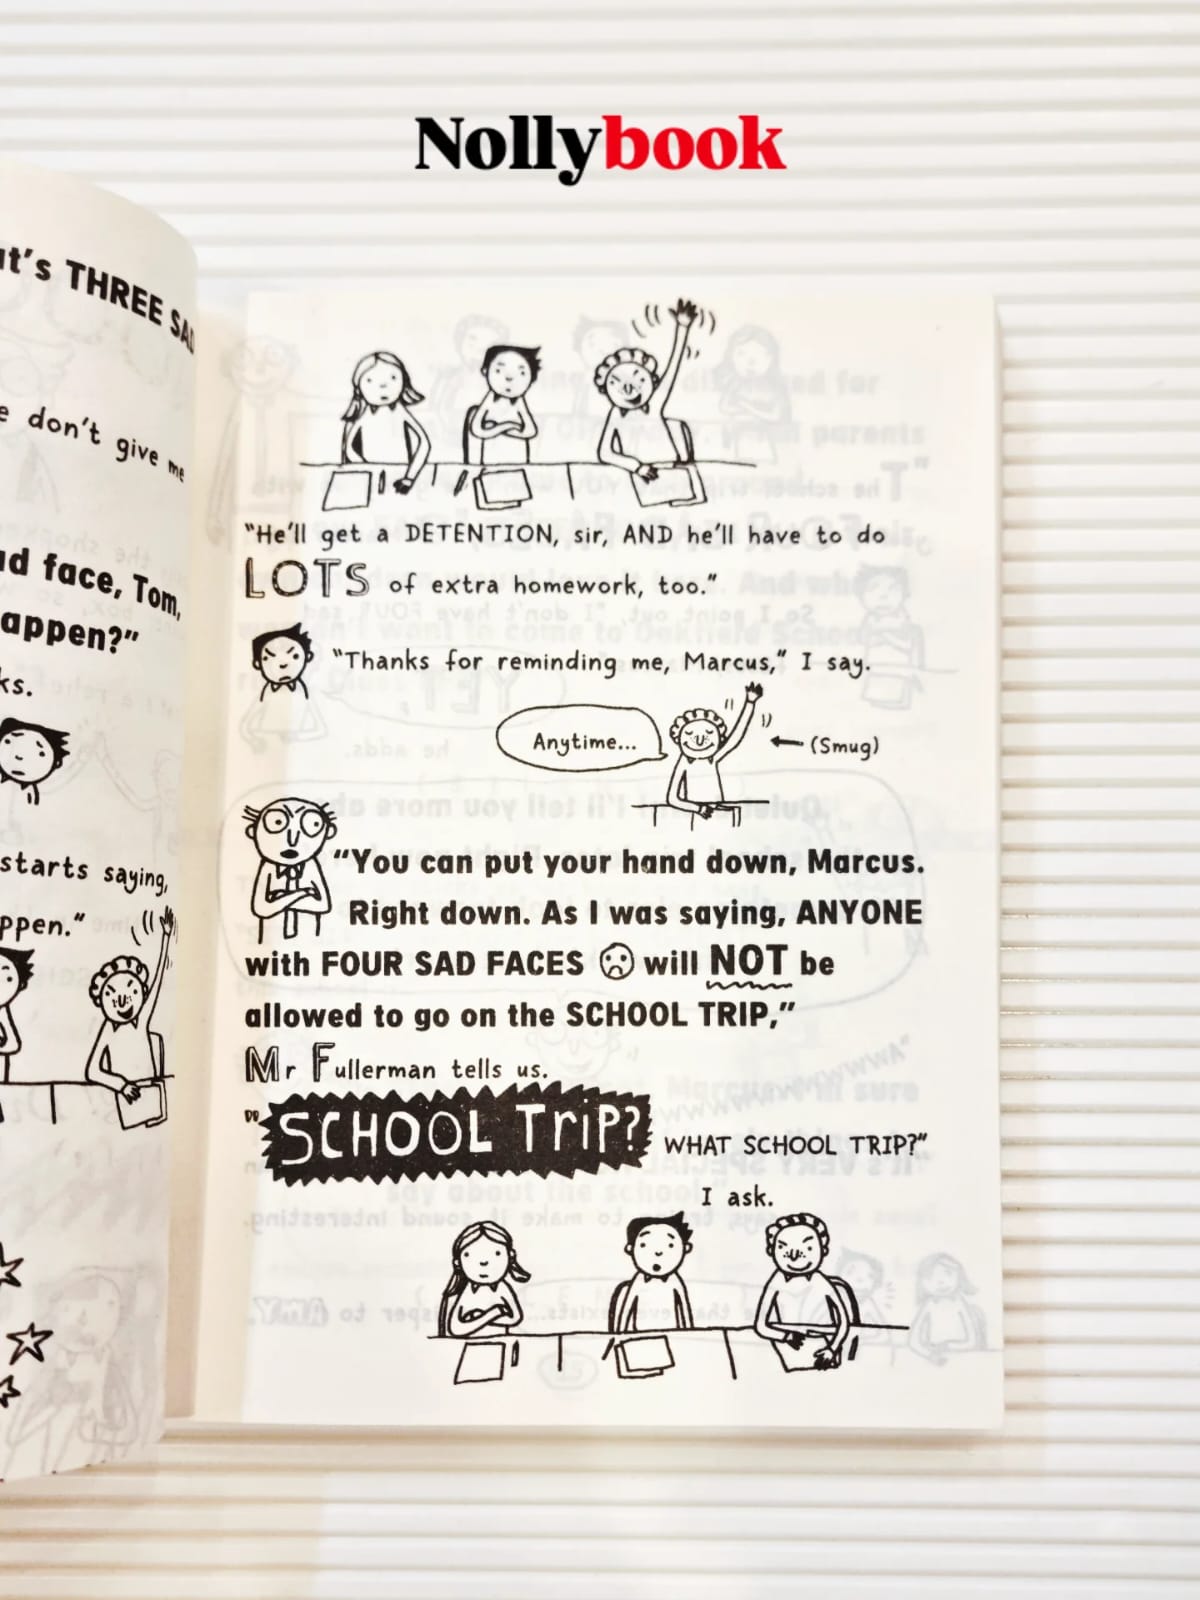 Nollybook
at's THREE SAD
e don't give me
ad face, Tom,
appen?"
ks.
starts saying,
ppen."
"He'll get a DETENTION, sir, AND he'll have to do
LOTS of extra homework, too."
"Thanks for reminding me, Marcus," I say.
Anytime...
(Smug)
"You can put your hand down, Marcus.
Right down. As I was saying, ANYONE
with FOUR SAD FACES will NOT be
allowed to go on the SCHOOL TRIP,"
Mr Fullerman tells us.
"SCHOOL TRiP? WHAT SCHOOL TRIP?"
I ask.